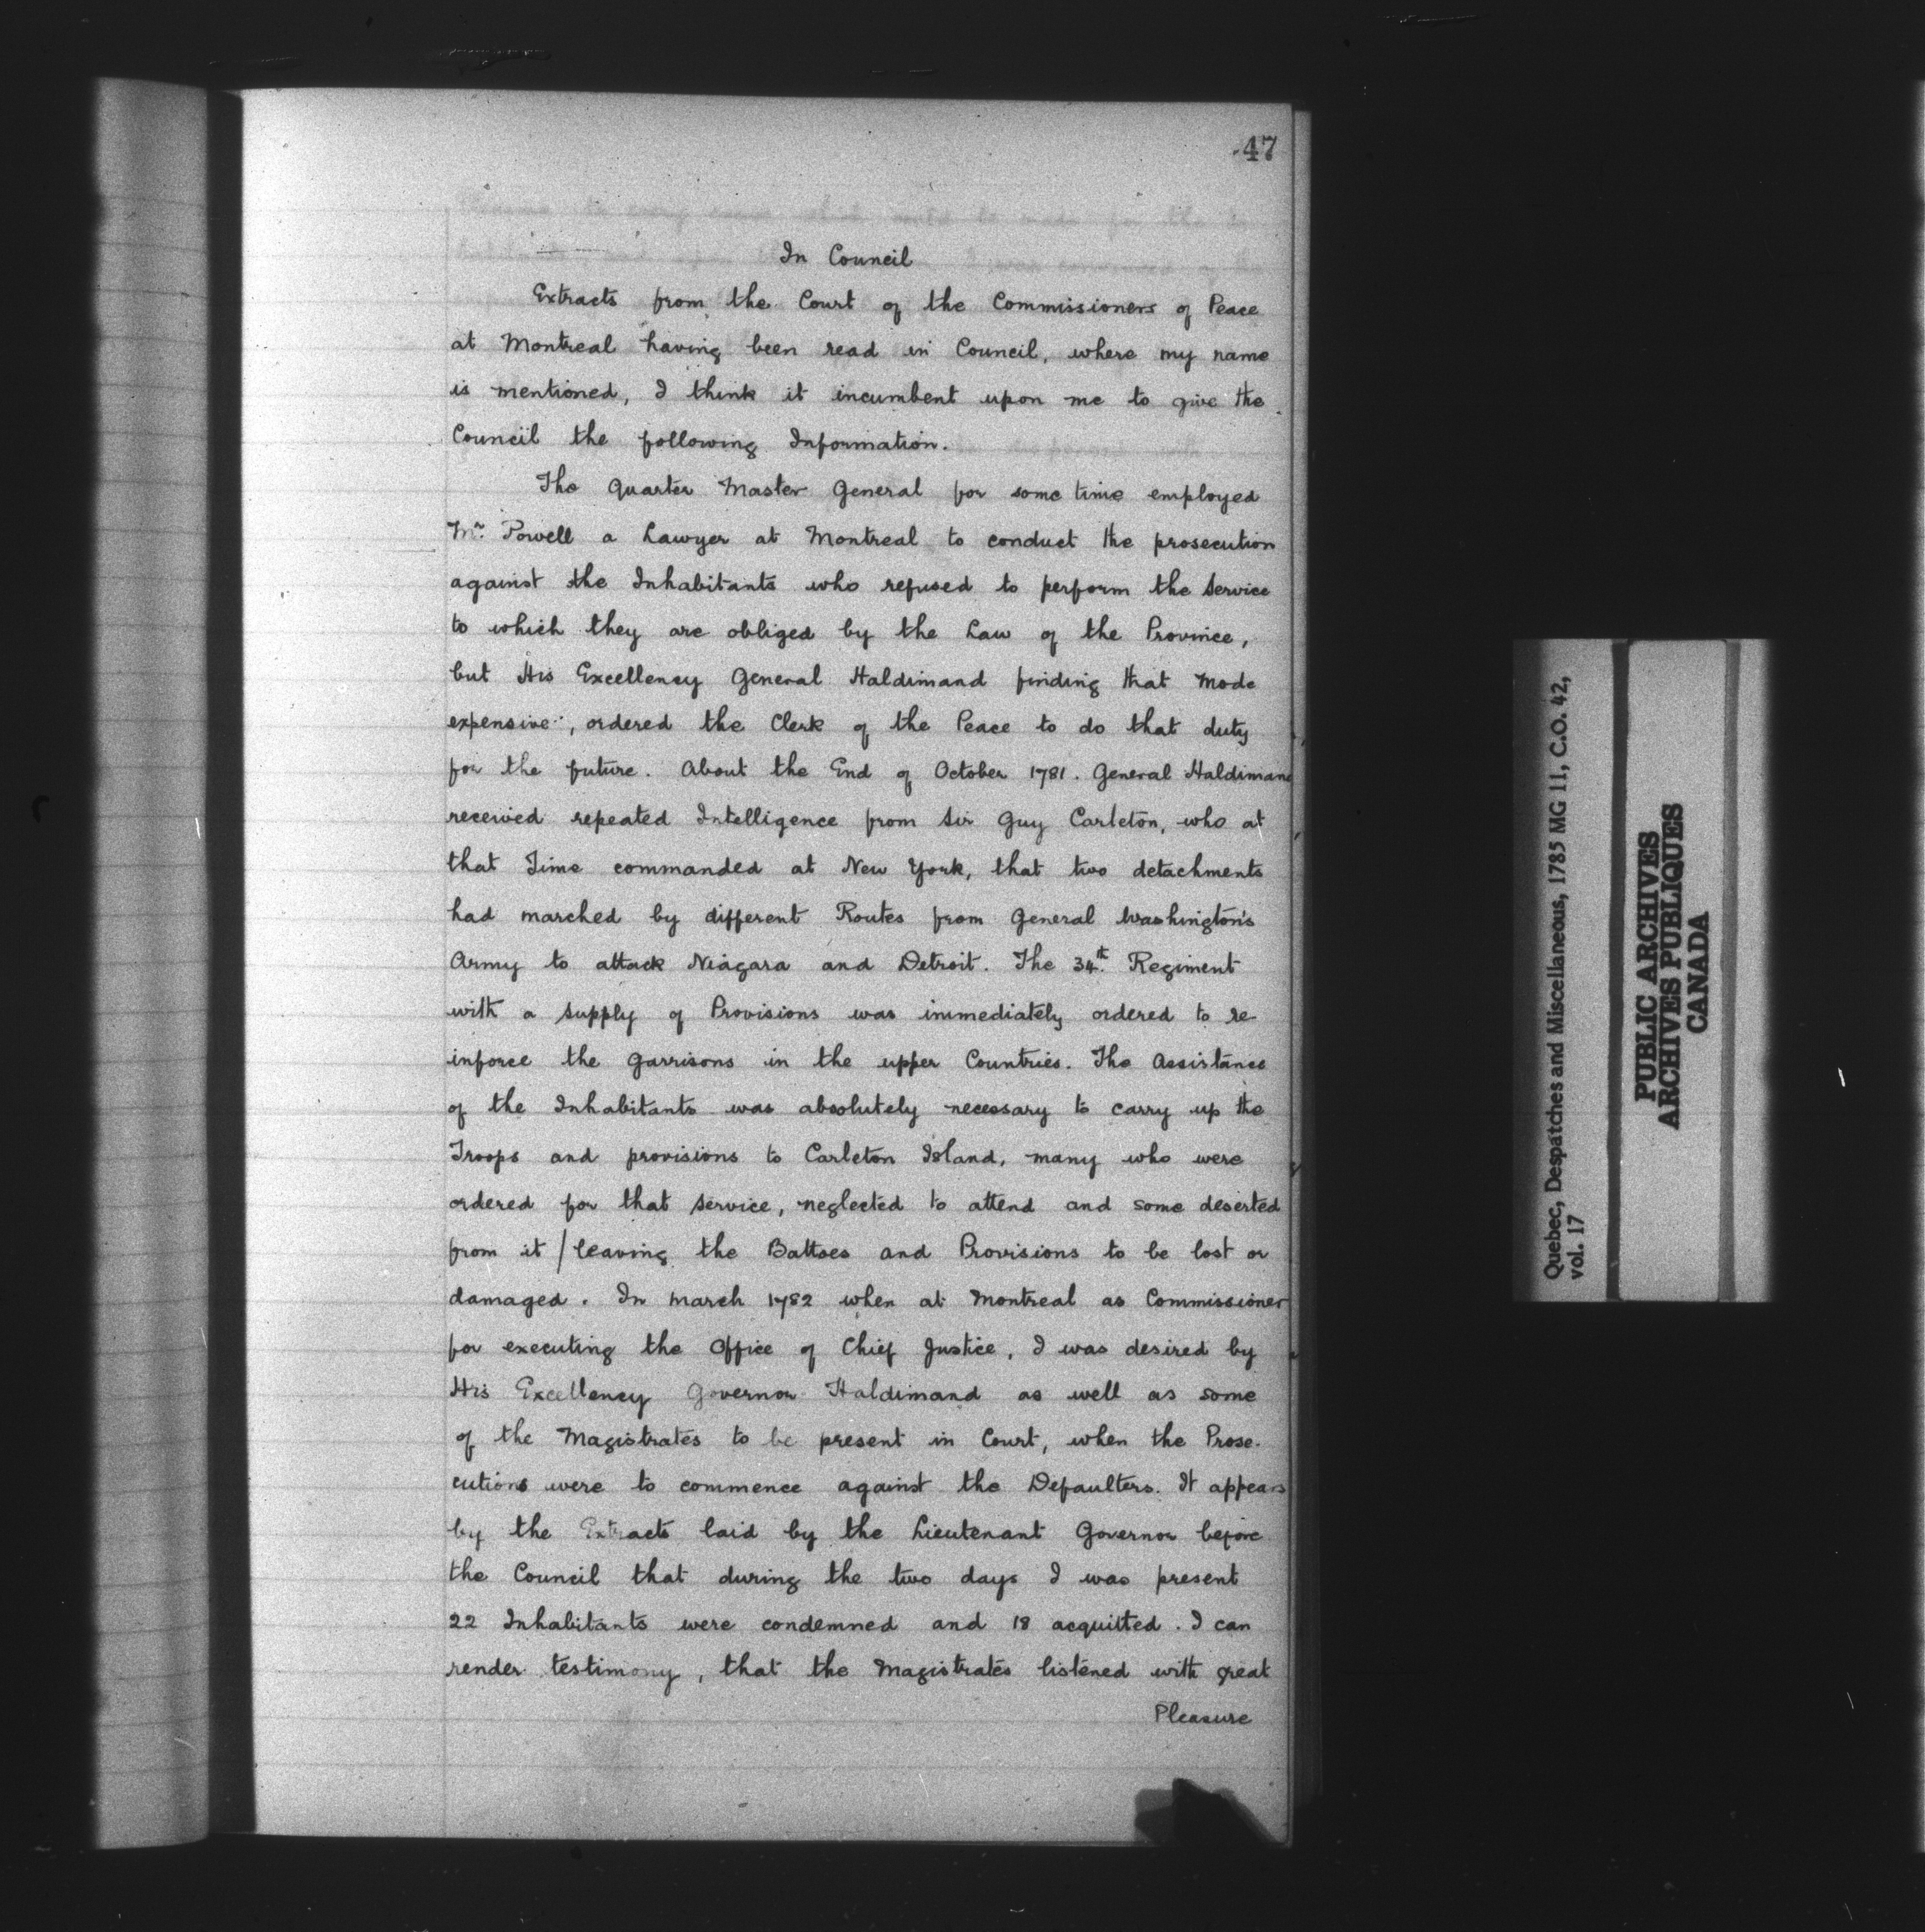 47
In Council
Extracts from the Court of the Commissioners of Peace
at Montreal having been read in Council, where my name
is mentioned, I think it incumbent upon me to give the
Council the following Information.
The Quarter Master General for some time employed
Mr. Powell a Lawyer at Montreal to conduct the prosecution
against the Inhabitants who refused to perform the Service
to which they are obliged by the Law of the Province,
but His Excellency General Haldimand finding that Mode
expensive, ordered the Clerk of the Peace to do that duty
for the future. About the End of October 1781. General Haldimand
received repeated Intelligence from Sir Guy Carleton, who at
that Time commanded at New York, that two detachments
had marched by different Routes from General Washington's
Army to attack Niagara and Detroit. The 34th. Regiment
with a supply of Provisions was immediately ordered to re-
inforce the Garrisons in the upper Countries. The Assistance
of the Inhabitants was absolutely necessary to carry up the
Troops and provisions to Carleton Island, many who were
ordered for that Service, neglected to attend and some deserted
from it / leaving the Battoes and Provisions to be lost or
damaged. In March 1782 when at Montreal as Commissioner
for executing the Office of Chief Justice, I was desired by
His Excellency Governor Haldimand as well as some
of the Magistrates to be present in Court, when the Prose-
cutions were to commence against the Defaulters. It appears
by the Extracts laid by the Lieutenant Governor before
the Council that during the two days I was present
22 Inhabitants were condemned and 18 acquitted. I can
render testimony, that the Magistrates listened with great
Pleasure
Quebec, Despatches and Miscellaneous, 1785 MG 11, C.O. 42,
vol. 17
PUBLIC ARCHIVES
ARCHIVES PUBLIQUES
CANADA